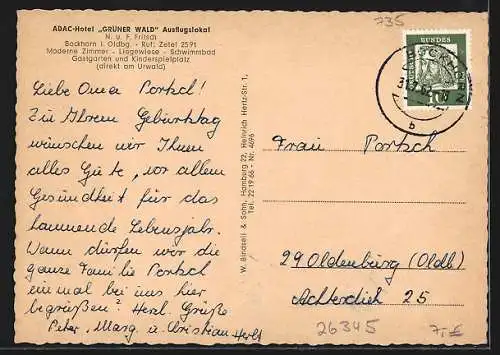 ADAC-Hotel „GRÜNER WALD" Ausflugslokal
N. u. F. Fritsch
Bockhorn i. Oldbg. - Ruf: Zetel 2591
Moderne Zimmer - Liegewiese - Schwimmbad
Gastgarten und Kinderspielplatz
(direkt am Urwald)
Liebe Oma Portsch!
Zu Ihrem Geburtstag
wünschen wir Ihnen
alles Gute, vor allem
Gesundheit für das
kommende Lebensjahr.
Wann dürfen wir die
ganze Familie Portsch
einmal bei uns hier
begrüßen? Herzl. Grüße
Peter, Marg. u. Christian
W. Bindseil & Sohn, Hamburg 22, Heinrich Hertz-Str. 1,
Tel. 22 19 66 - Nr. 4696
735
BUNDES
BOCKHORN
b
Frau Portsch
29 Oldenburg (Oldb)
Achterdiek 25
26345